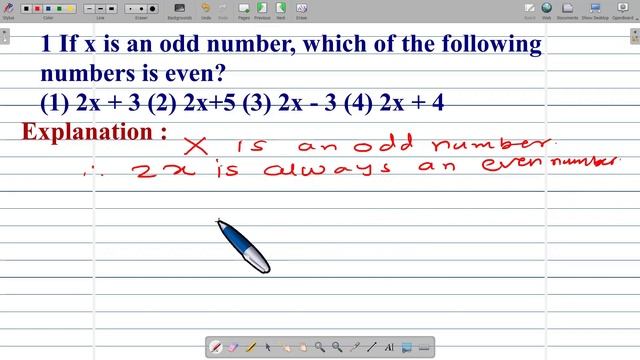 Stylus
Color
Line
Eraser
Backgrounds
Undo
Redo
Pages
Previous
Next
Board
Web
Documents
Show Desktop
OpenBoard
1 If x is an odd number, which of the following
numbers is even?
(1) 2x + 3 (2) 2x+5 (3) 2x - 3 (4) 2x + 4
Explanation :
X is an odd number.
∴ 2x is always an even number.